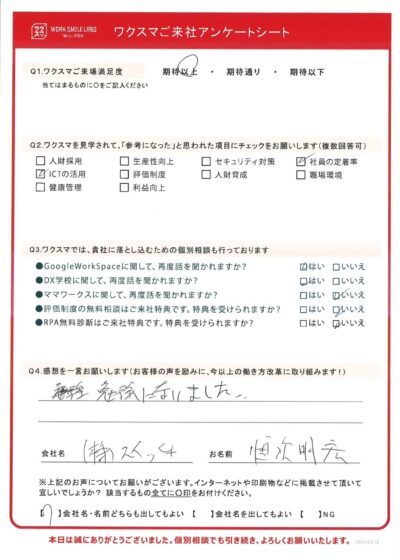 ワクスマ
WORK SMILE LABO
ワクスマご来社アンケートシート
Q1.ワクスマご来場満足度 期待以上 ・ 期待通り ・ 期待以下
当てはまるものに○をご記入ください
Q2.ワクスマを見学されて、「参考になった」と思われた項目にチェックをお願いします(複数回答可)
□人財採用 □生産性向上 □セキュリティ対策 ☑社員の定着率
☑ICTの活用 □評価制度 □人財育成 □職場環境
□健康管理 □利益向上
Q3.ワクスマでは、貴社に落とし込むための個別相談も行っております
●GoogleWorkSpaceに関して、再度話を聞かれますか? ☑はい □いいえ
●DX学校に関して、再度話を聞かれますか? ☑はい □いいえ
●ママワークスに関して、再度話を聞かれますか? □はい ☑いいえ
●評価制度の無料相談はご来社特典です。特典を受けられますか? □はい ☑いいえ
●RPA無料診断はご来社特典です。特典を受けられますか? □はい ☑いいえ
Q4.感想を一言お願いします(お客様の声を励みに、今以上の働き方改革に取り組みます!)
勉強になりました。
会社名 (株) お名前 恒次明宏
※上記のお声についてお願いがございます。インターネットや印刷物などに掲載させて頂いて
宜しいでしょうか? 該当するもの全てに○印をお付けください。
【 】会社名・名前どちらも出してもよい 【 】会社名を出してもよい 【 】NG
本日は誠にありがとうございました。個別相談でも引き続き、よろしくお願いいたします。